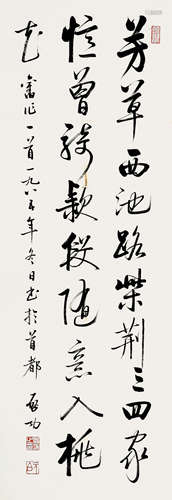 芳草西池路柴荆三四家
憶曾騎款段随意入桃
花 舊作一首一九八五年冬日書於首都 啟功